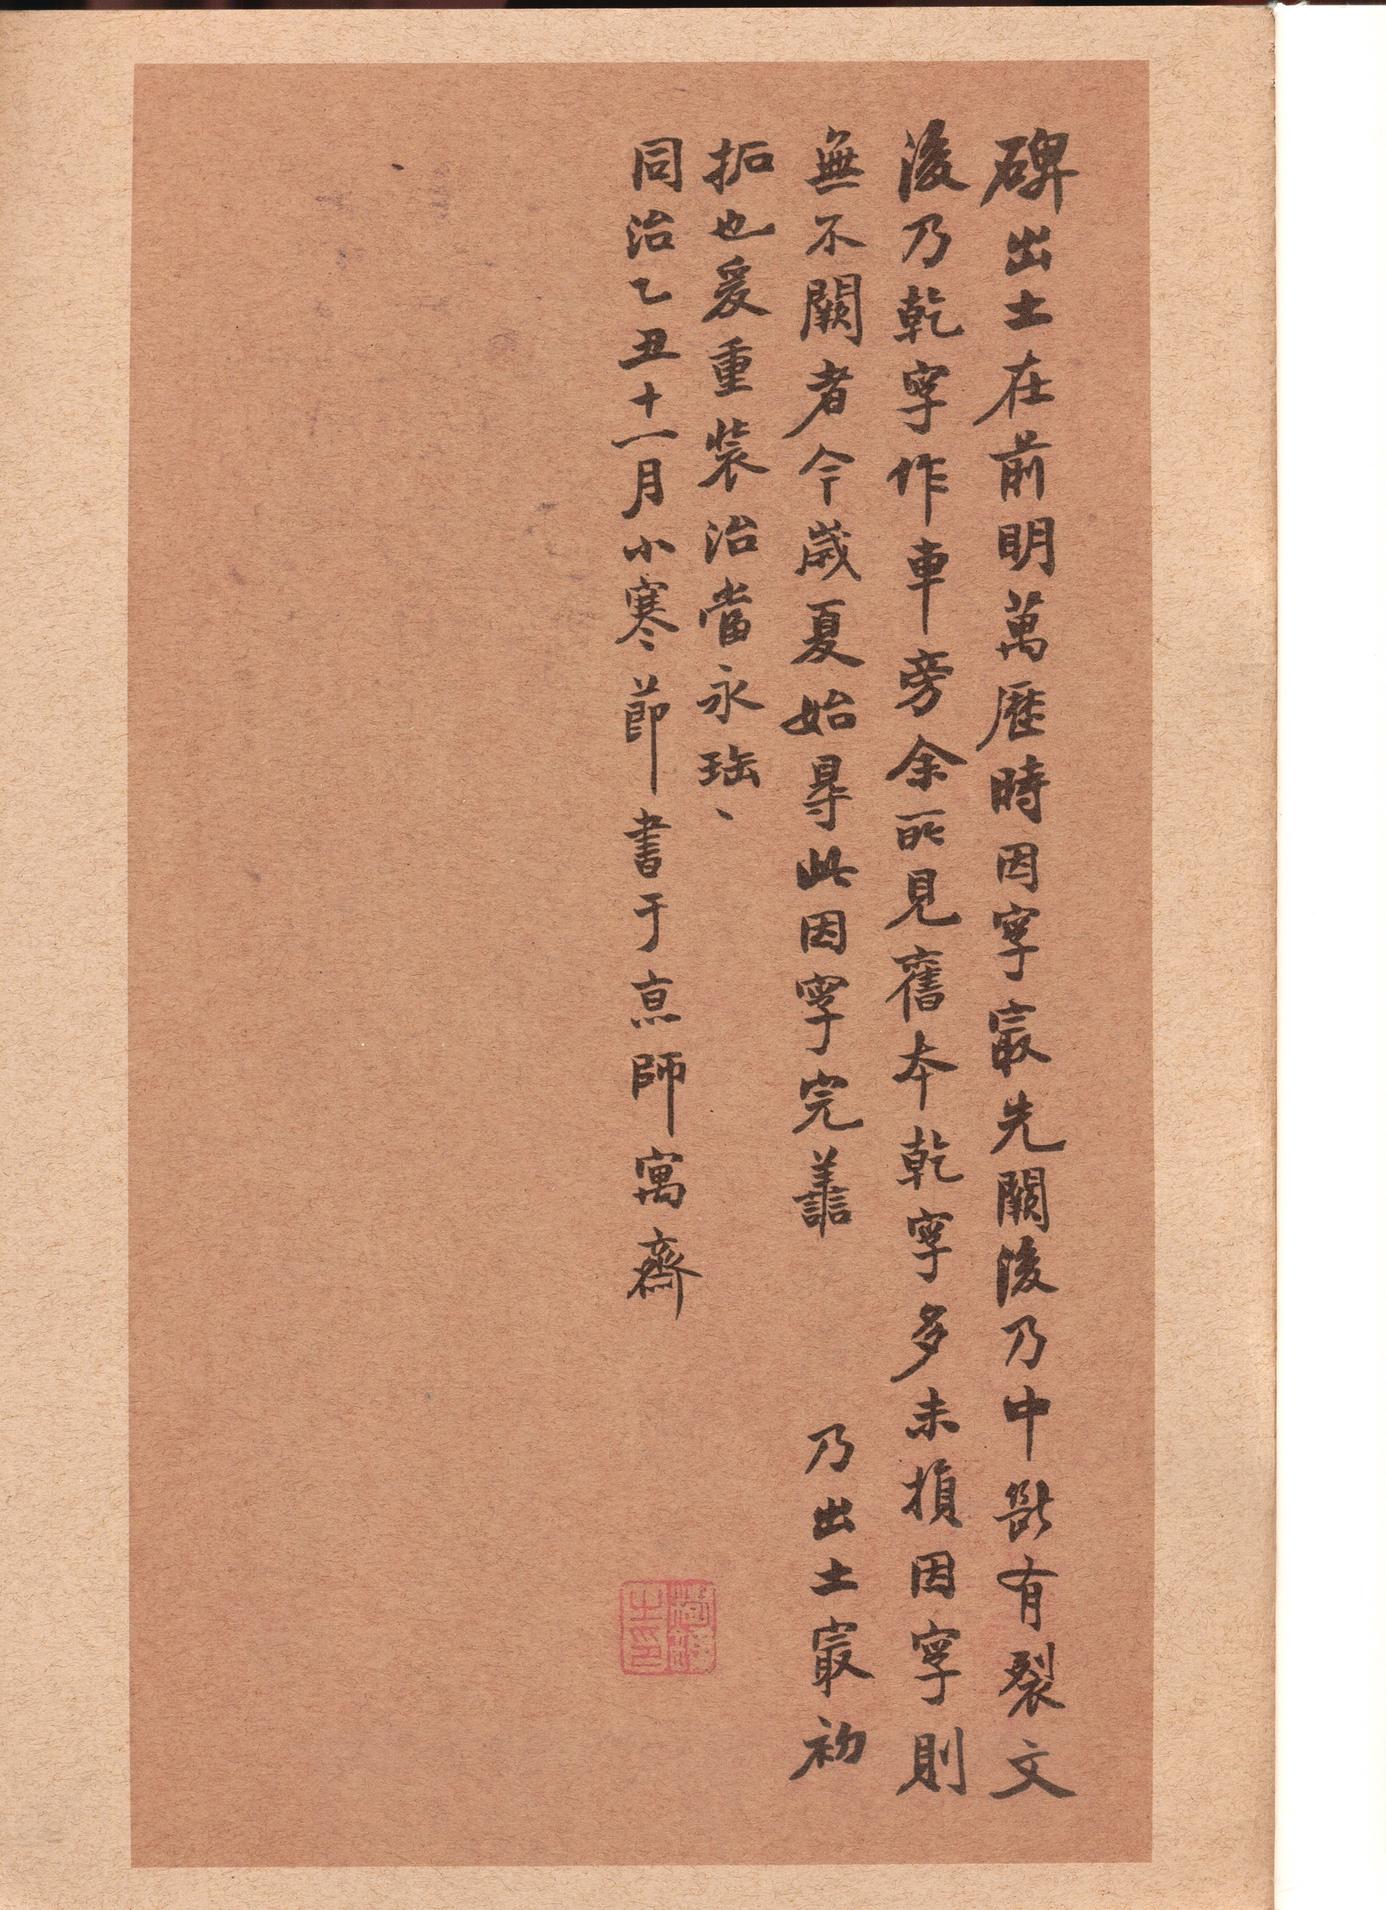 碑出土在前明萬歷時因字冣先闕後乃中斷有裂文
後乃乾字作車旁余所見舊本乾字多未損因字則
無不闕者今歲夏始㝵此因字完譱　乃出土冣初
拓也爰重裝治當永珤、
同治乙丑十一月小寒節書于京師寓齋
之印